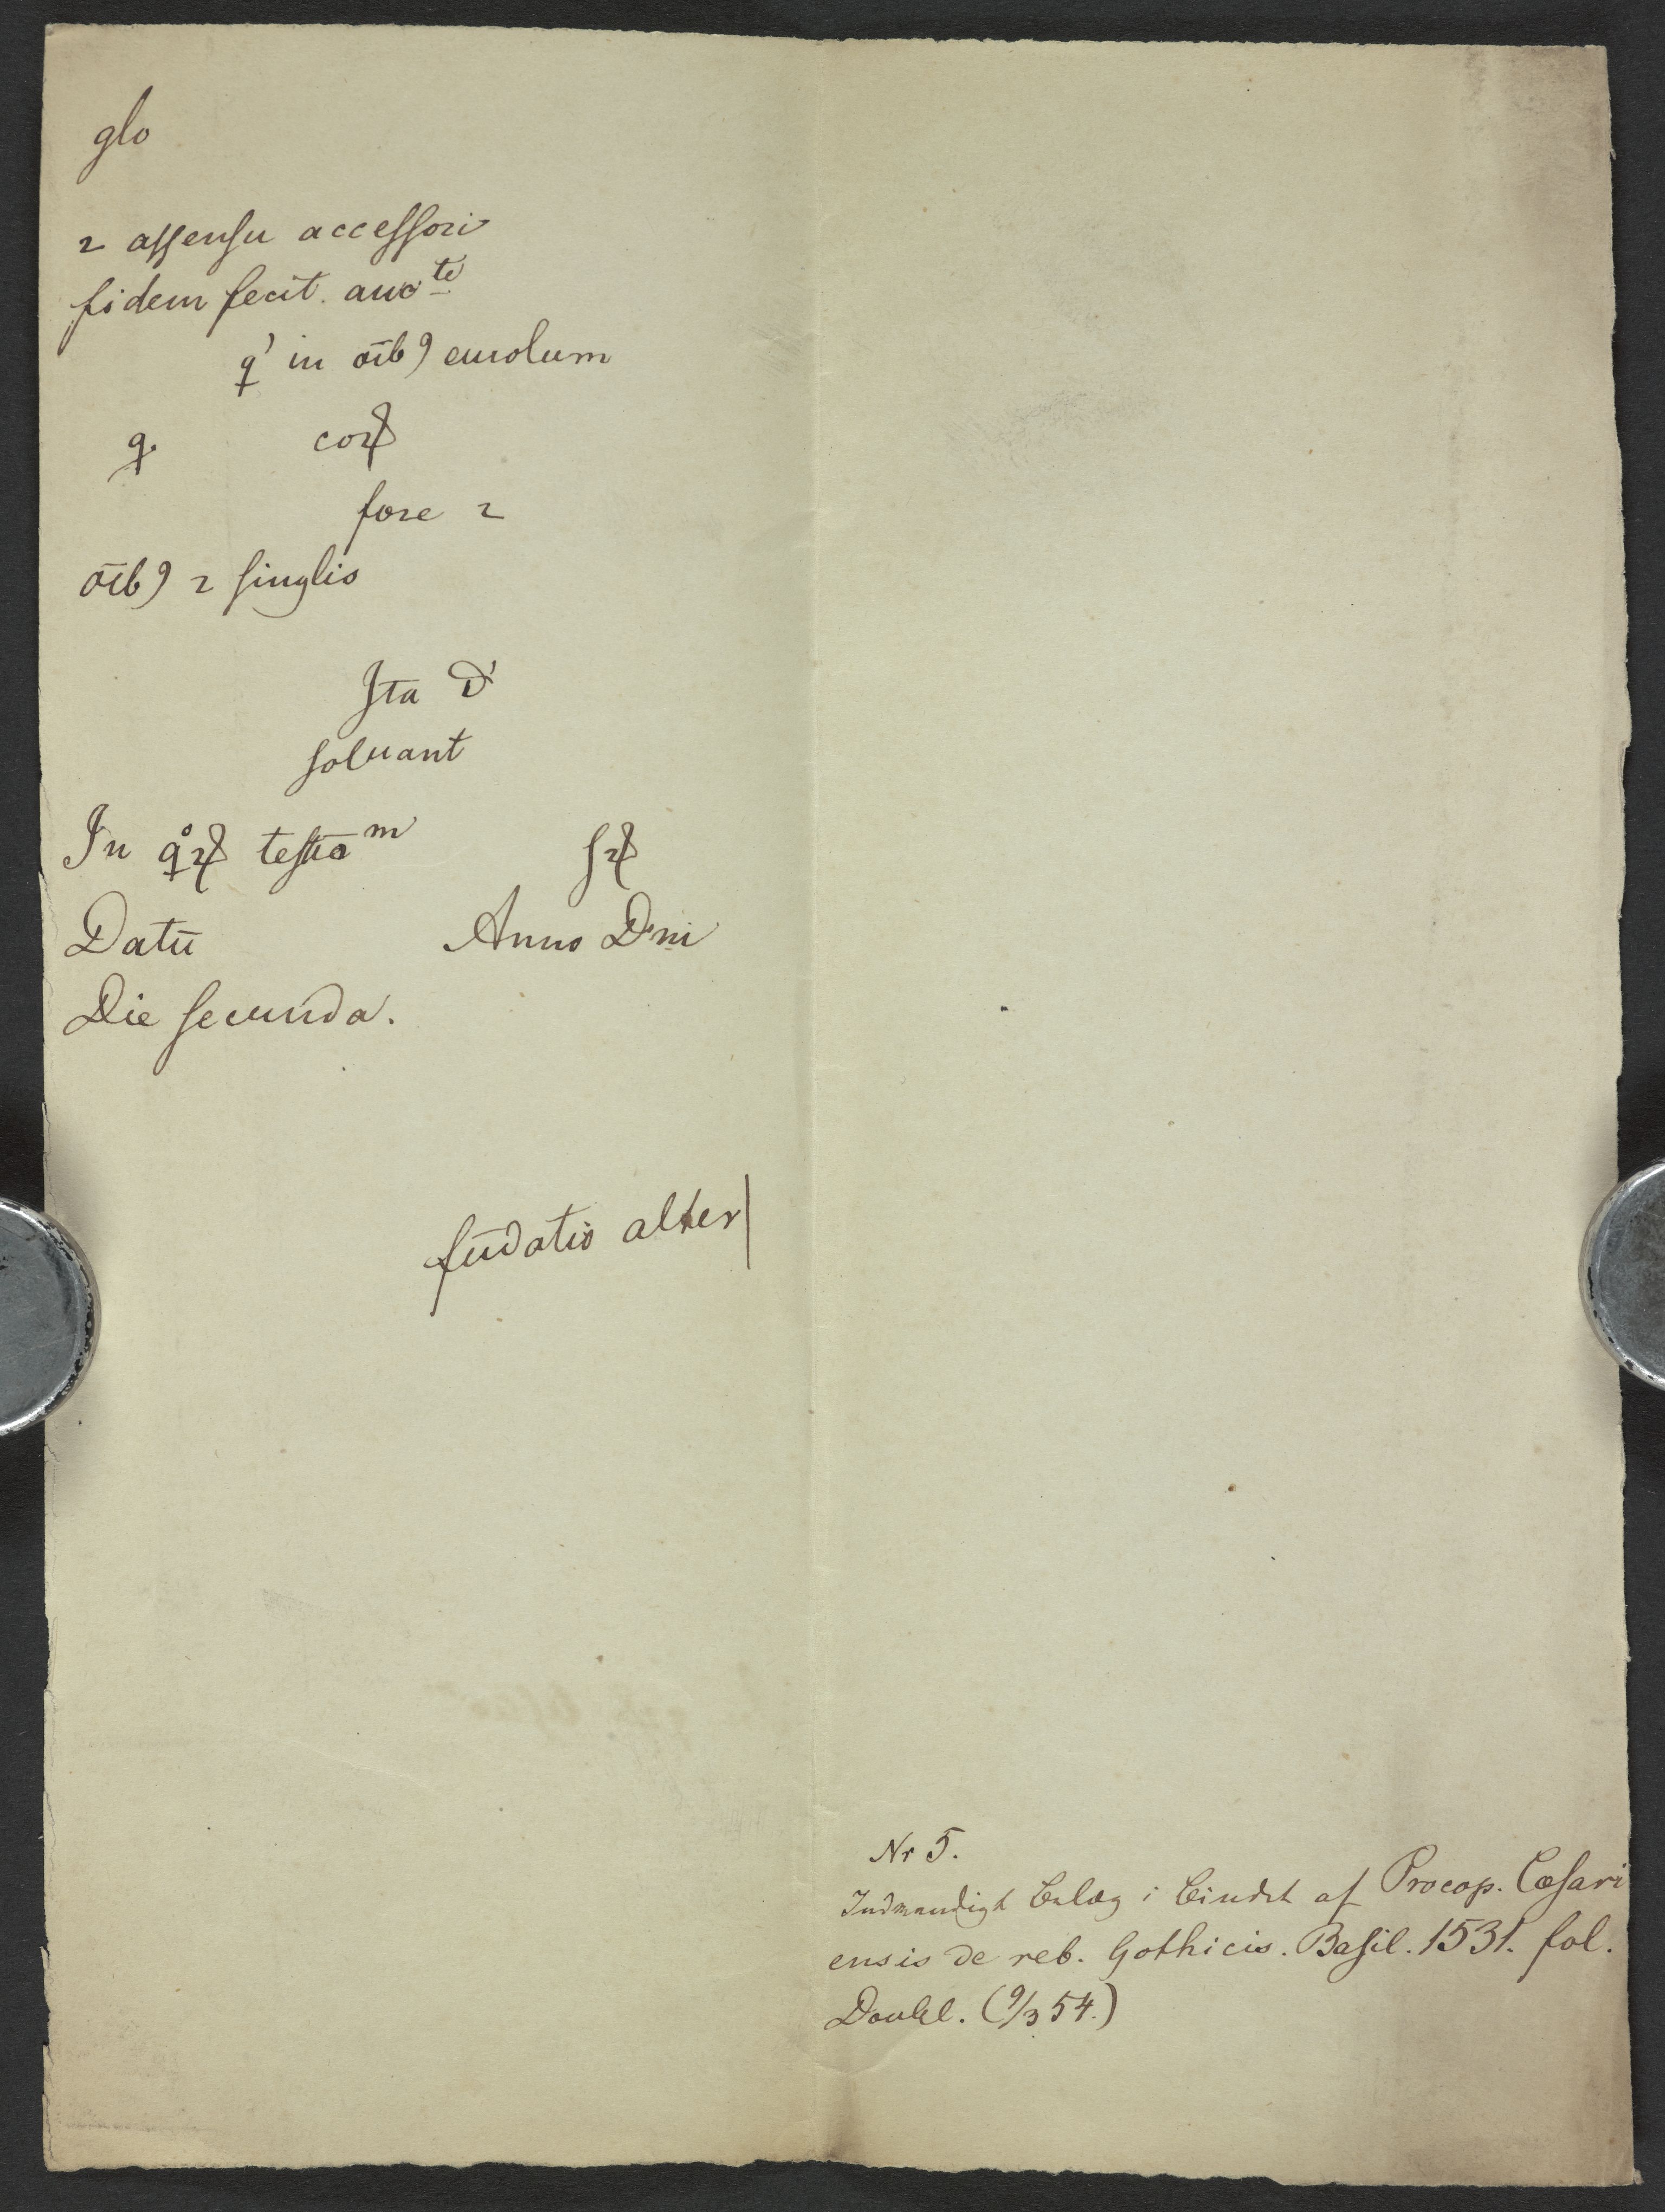 glo
⁊ assensu accessori
fidem fecit. aucte
q' in oīb9 emolum
q. corꝝ
fore ⁊
oīb9 ⁊ singlis
Ita d'
soluant
In q̊ꝝ testiom sꝝ
Datū Anno Dni
Die secunda.
fūdatio alter
Nr 5.
Indvendigt Belæg i Bindet af Procop. Cæsari
ensis de reb. Gothicis. Basil. 1531. fol.
Doubl. (9/3 54.)